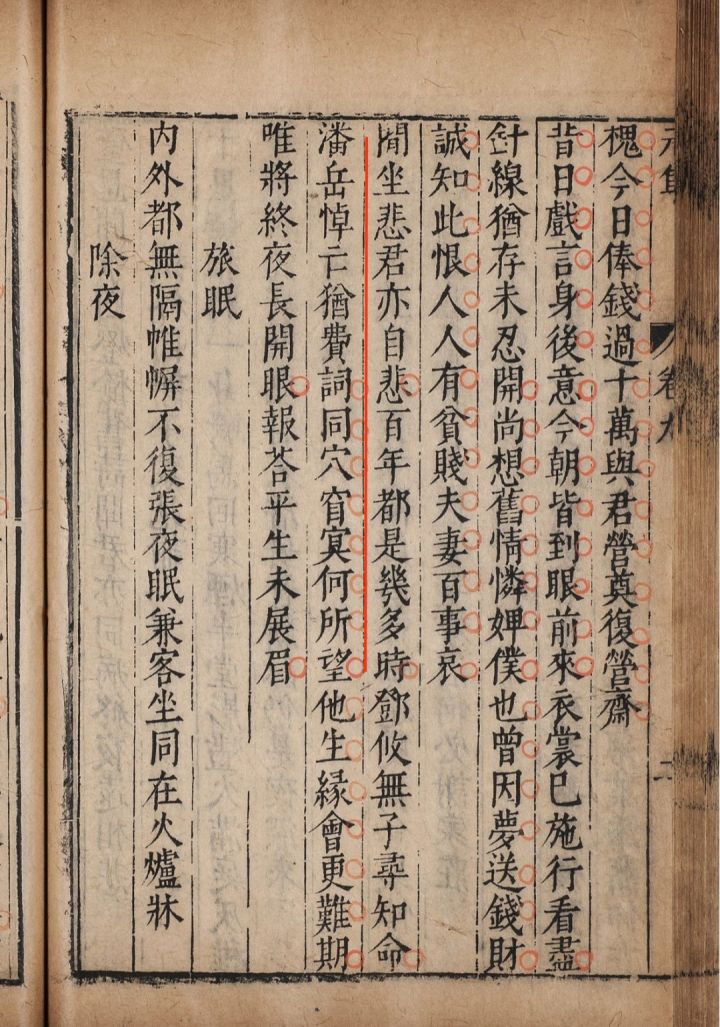 元集
卷九
二
槐今日俸錢過十萬與君營奠復營齋
昔日戲言身後意今朝皆到眼前來衣裳已施行看盡
針線猶存未忍開尚想舊情憐婢僕也曾因夢送錢財
誠知此恨人人有貧賤夫妻百事哀
閒坐悲君亦自悲百年都是幾多時鄧攸無子尋知命
潘岳悼亡猶費詞同穴窅冥何所望他生緣會更難期
唯將終夜長開眼報荅平生未展眉
旅眠
內外都無隔帷幈不復張夜眠兼客坐同在火爐牀
除夜